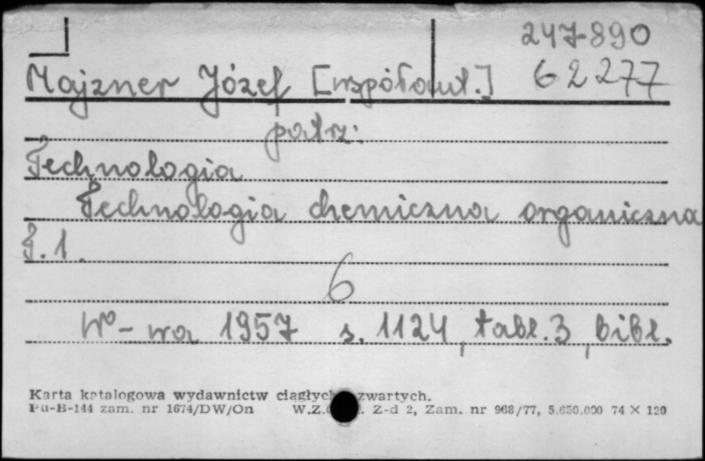 247-890
Majzner Józef [współaut.] 62277
patrz:
Technologia
Technologia chemiczna organiczna
T. 1.
6
W-wa 1957 s. 1124, tabl. 3, bibl.
Karta katalogowa wydawnictw ciągłych zwartych.
Pu-B-144 zam. nr 1674/DW/On W.Z. Z-d 2, Zam. nr 968/77, 5.650.000 74 × 120